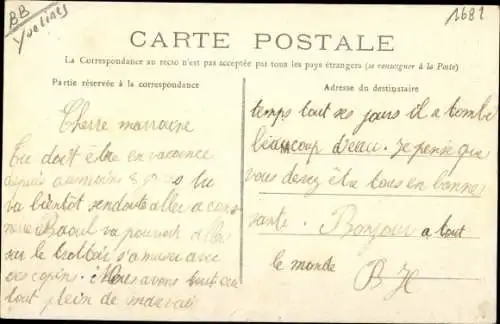 BB
Yvelines
1682
CARTE POSTALE
La Correspondance au recto n'est pas acceptée par tous les pays étrangers (se renseigner à la Poste)
Partie réservée à la correspondance
Adresse du destinataire
Cherre marraine
Tu doit être en vacance
depuis au moins 8 tu
va bientôt sendoute aller a
Raoul va pouvoir aller
sur le trottoir s'amuser avec
ces copins. Nous avons
tout plein de mauvais
temps tout ses jours il a tombé
beaucoup d'eau. Je pense que
vous devez être tous en bonne
santé. Bonjour a tout
le monde
B H